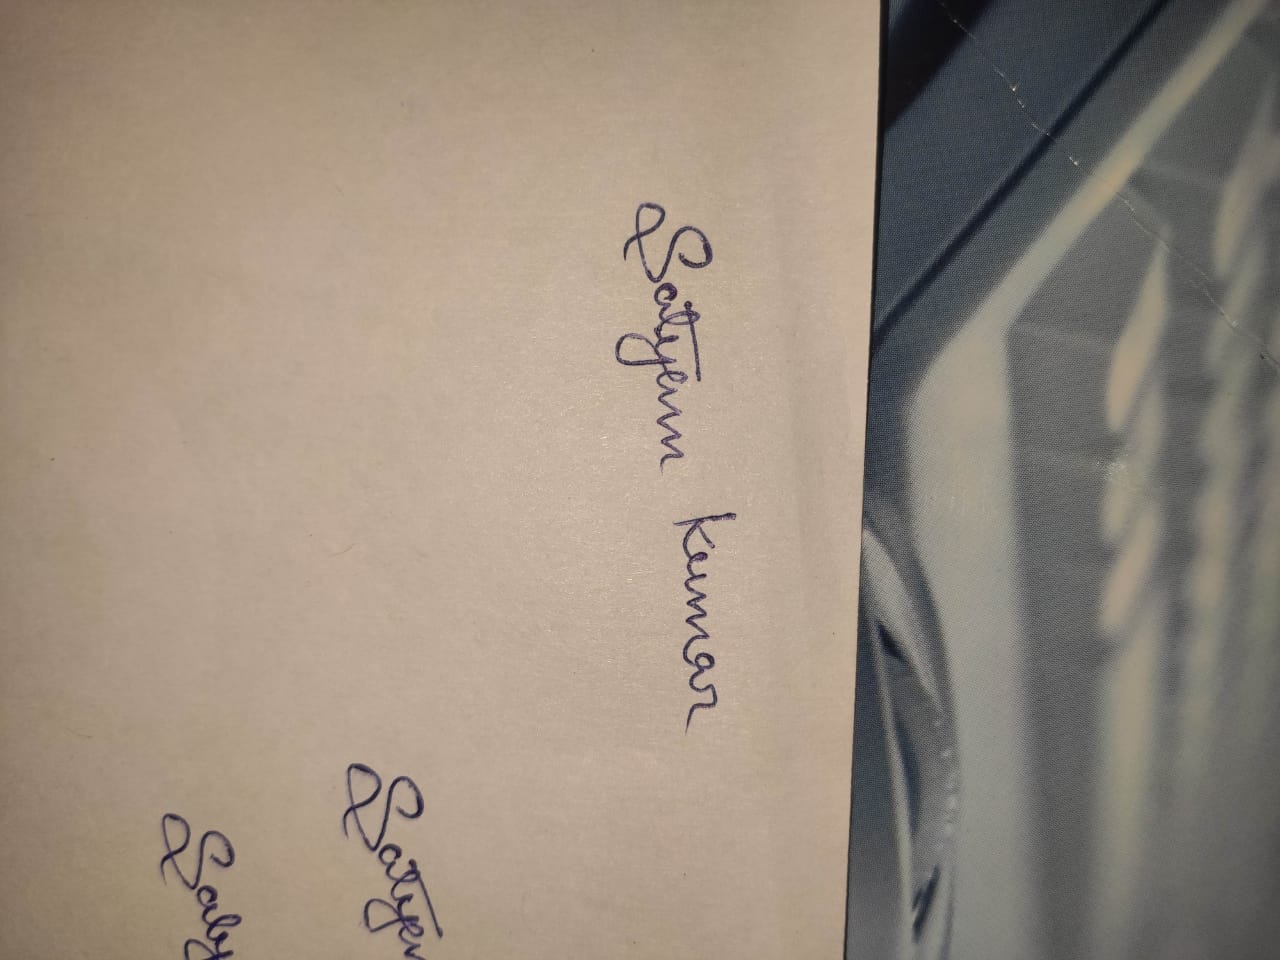 Satyam Kumar
Satyam
Saty